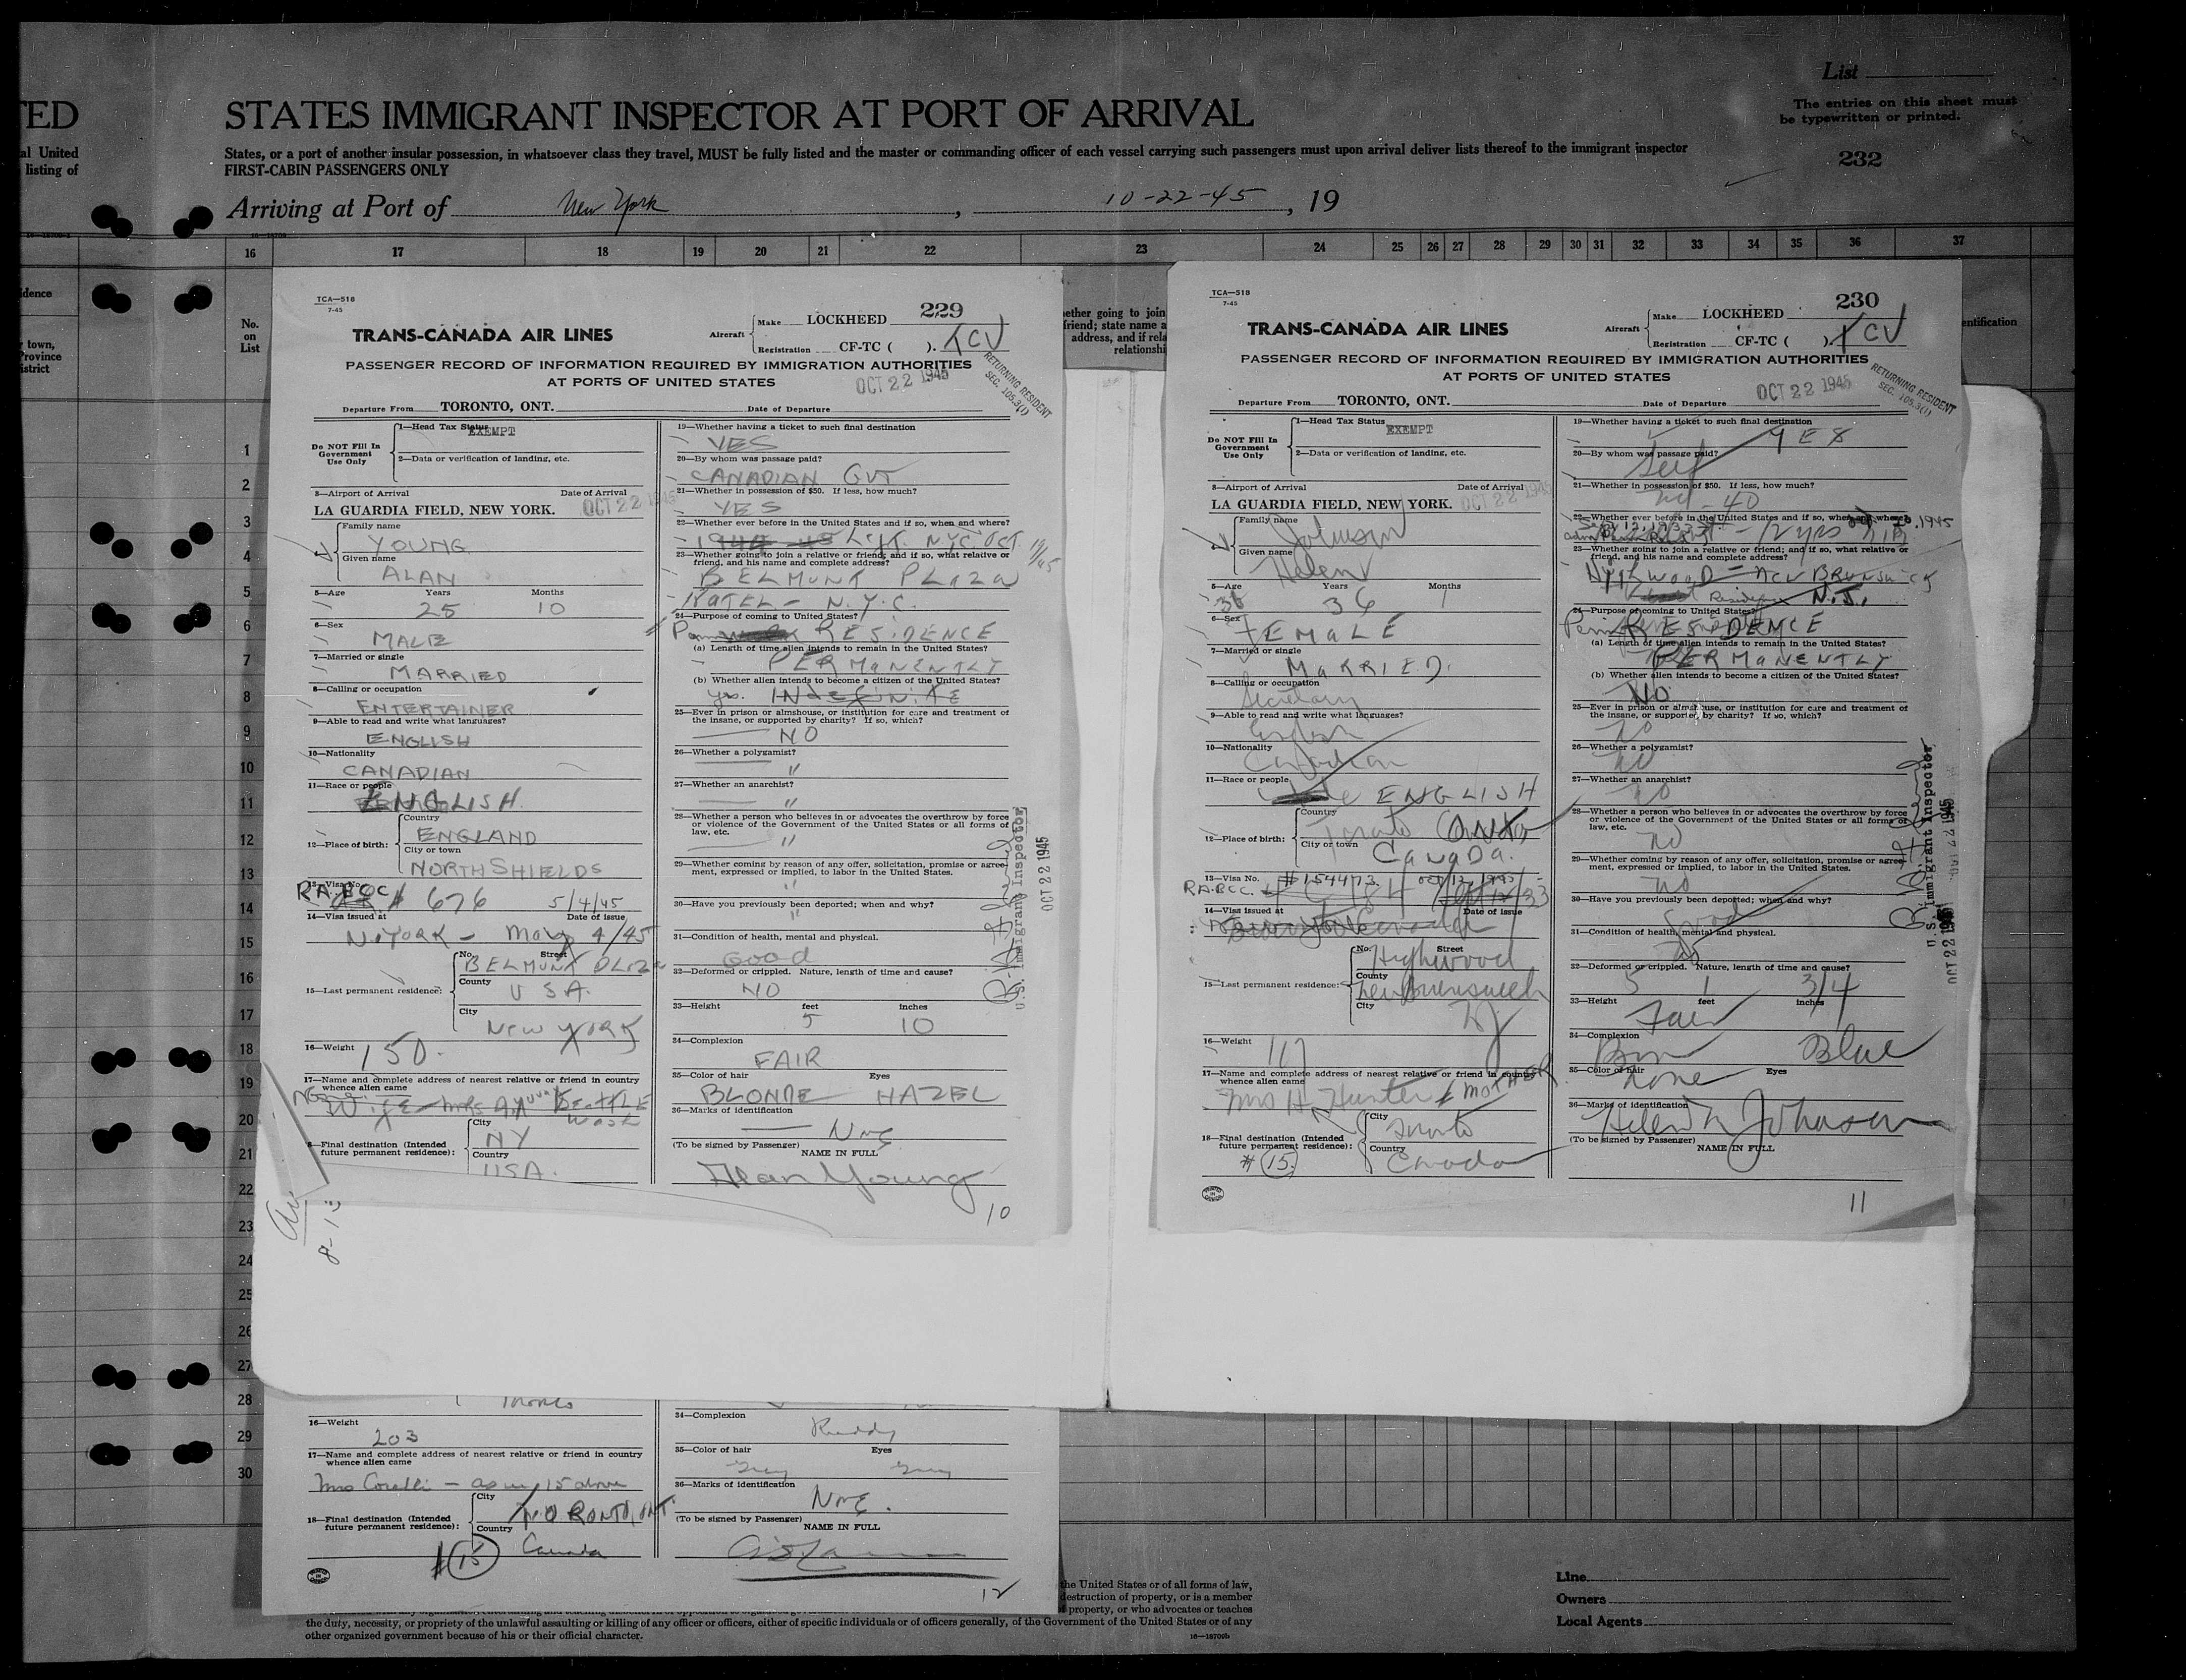 List
The entries on this sheet must
be typewritten or printed.
232
TED
STATES IMMIGRANT INSPECTOR AT PORT OF ARRIVAL
al United
listing of
States, or a port of another insular possession, in whatsoever class they travel, MUST be fully listed and the master or commanding officer of each vessel carrying such passengers must upon arrival deliver lists thereof to the immigrant inspector
FIRST-CABIN PASSENGERS ONLY
Arriving at Port of New York, 10-22-45, 19
16 17 18 19 20 21 22 23 24 25 26 27 28 29 30 31 32 33 34 35 36 37
dence
town,
Province
istrict
No.
on
List
1
2
3
4
5
6
7
8
9
10
11
12
13
14
15
16
17
18
19
20
21
22
23
24
25
26
27
28
29
30
TCA—518
7-45
229
TRANS-CANADA AIR LINES
Aircraft
Make LOCKHEED
Registration CF-TC ( ). TCV
PASSENGER RECORD OF INFORMATION REQUIRED BY IMMIGRATION AUTHORITIES
AT PORTS OF UNITED STATES
OCT 22 1945
RETURNING RESIDENT
SEC. 105.3(1)
Departure From TORONTO, ONT. Date of Departure
Do NOT Fill In
Government
Use Only
1—Head Tax Status EXEMPT
2—Data or verification of landing, etc.
3—Airport of Arrival Date of Arrival
LA GUARDIA FIELD, NEW YORK. OCT 22 1945
Family name
YOUNG
Given name
ALAN
5—Age Years Months
25 10
6—Sex
MALE
7—Married or single
MARRIED
8—Calling or occupation
ENTERTAINER
9—Able to read and write what languages?
ENGLISH
10—Nationality
CANADIAN
11—Race or people
ENGLISH
12—Place of birth:
Country
ENGLAND
City or town
NORTH SHIELDS
13—Visa No.
RA.BCC # 676 5/4/45
14—Visa issued at Date of issue
N.YORK - May 4/45
15—Last permanent residence:
No. Street
BELMONT PLAZA
County
USA.
City
NEW YORK
16—Weight
150.
17—Name and complete address of nearest relative or friend in country
whence alien came
None
WIFE - MRS A. YOUNG SEATTLE
WASH
18—Final destination (Intended
future permanent residence):
City
NY
Country
USA.
19—Whether having a ticket to such final destination
YES
20—By whom was passage paid?
CANADIAN GVT
21—Whether in possession of $50. If less, how much?
YES
22—Whether ever before in the United States and if so, when and where?
1944 - 45 Left NYC OCT. 19/45
23—Whether going to join a relative or friend; and if so, what relative or
friend, and his name and complete address?
BELMONT PLAZA
HOTEL - N.Y.C.
24—Purpose of coming to United States?
RESIDENCE
(a) Length of time alien intends to remain in the United States?
PERMANENTLY
(b) Whether alien intends to become a citizen of the United States?
yes. INDEFINITE
25—Ever in prison or almshouse, or institution for care and treatment of
the insane, or supported by charity? If so, which?
NO
26—Whether a polygamist?
"
27—Whether an anarchist?
"
28—Whether a person who believes in or advocates the overthrow by force
or violence of the Government of the United States or all forms of
law, etc.
"
29—Whether coming by reason of any offer, solicitation, promise or agree-
ment, expressed or implied, to labor in the United States.
"
30—Have you previously been deported; when and why?
"
31—Condition of health, mental and physical.
Good
32—Deformed or crippled. Nature, length of time and cause?
NO
33—Height feet inches
5 10
34—Complexion
FAIR
35—Color of hair Eyes
BLONDE HAZEL
36—Marks of identification
None
(To be signed by Passenger) NAME IN FULL
Alan Young
10
U.S. Immigrant Inspector
OCT 22 1945
ether going to join
friend; state name a
address, and if rela
relationshi
TCA—518
7-45
230
TRANS-CANADA AIR LINES
Aircraft
Make LOCKHEED
Registration CF-TC ( ). TCV
PASSENGER RECORD OF INFORMATION REQUIRED BY IMMIGRATION AUTHORITIES
AT PORTS OF UNITED STATES
OCT 22 1945
RETURNING RESIDENT
SEC. 105.3(1)
entification
Departure From TORONTO, ONT. Date of Departure
Do NOT Fill In
Government
Use Only
1—Head Tax Status EXEMPT
2—Data or verification of landing, etc.
3—Airport of Arrival Date of Arrival
LA GUARDIA FIELD, NEW YORK. OCT 22 1945
Family name
Johnson
Given name
Helen
5—Age Years Months
36 36 1
6—Sex
FEMALE
7—Married or single
MARRIED.
8—Calling or occupation
Secretary
9—Able to read and write what languages?
English
10—Nationality
Canadian
11—Race or people
ENGLISH
12—Place of birth:
Country
Toronto Ontario
City or town
CANADA.
13—Visa No.
RA.BCC. #154473. Oct 12, 1945
14—Visa issued at Date of issue
15—Last permanent residence:
No. Street
Highwood
County
New Brunswick
City
NJ
16—Weight
117
17—Name and complete address of nearest relative or friend in country
whence alien came
Mrs H. Hunter MOTHER
18—Final destination (Intended
future permanent residence):
# 15.
City
Toronto
Country
Canada
19—Whether having a ticket to such final destination
YES
20—By whom was passage paid?
Self
21—Whether in possession of $50. If less, how much?
40
22—Whether ever before in the United States and if so, when and where?
12 yrs
23—Whether going to join a relative or friend; and if so, what relative or
friend, and his name and complete address?
NEW BRUNSWICK
Residence N.J.
24—Purpose of coming to United States?
RESIDENCE
(a) Length of time alien intends to remain in the United States?
PERMANENTLY
(b) Whether alien intends to become a citizen of the United States?
NO
25—Ever in prison or almshouse, or institution for care and treatment of
the insane, or supported by charity? If so, which?
no
26—Whether a polygamist?
no
27—Whether an anarchist?
no
28—Whether a person who believes in or advocates the overthrow by force
or violence of the Government of the United States or all forms of
law, etc.
no
29—Whether coming by reason of any offer, solicitation, promise or agree-
ment, expressed or implied, to labor in the United States.
no
30—Have you previously been deported; when and why?
Good
31—Condition of health, mental and physical.
no
32—Deformed or crippled. Nature, length of time and cause?
5 1 3/4
33—Height feet inches
Fair
34—Complexion
Brn Blue
35—Color of hair Eyes
none
36—Marks of identification
Helen N Johnson
(To be signed by Passenger) NAME IN FULL
11
U.S. Immigrant Inspector
OCT 22 1945
Toronto
16—Weight
203
17—Name and complete address of nearest relative or friend in country
whence alien came
Mrs Corelli - as in 15 above
18—Final destination (Intended
future permanent residence):
City
TORONTO, ONT.
Country
Canada
# 15
34—Complexion
Ruddy
35—Color of hair Eyes
Grey Grey
36—Marks of identification
None.
(To be signed by Passenger) NAME IN FULL
12
the United States or of all forms of law,
destruction of property, or is a member
property, or who advocates or teaches
the duty, necessity, or propriety of the unlawful assaulting or killing of any officer or officers, either of specific individuals or of officers generally, of the Government of the United States or of any
other organized government because of his or their official character.
16—18709b
Line
Owners
Local Agents